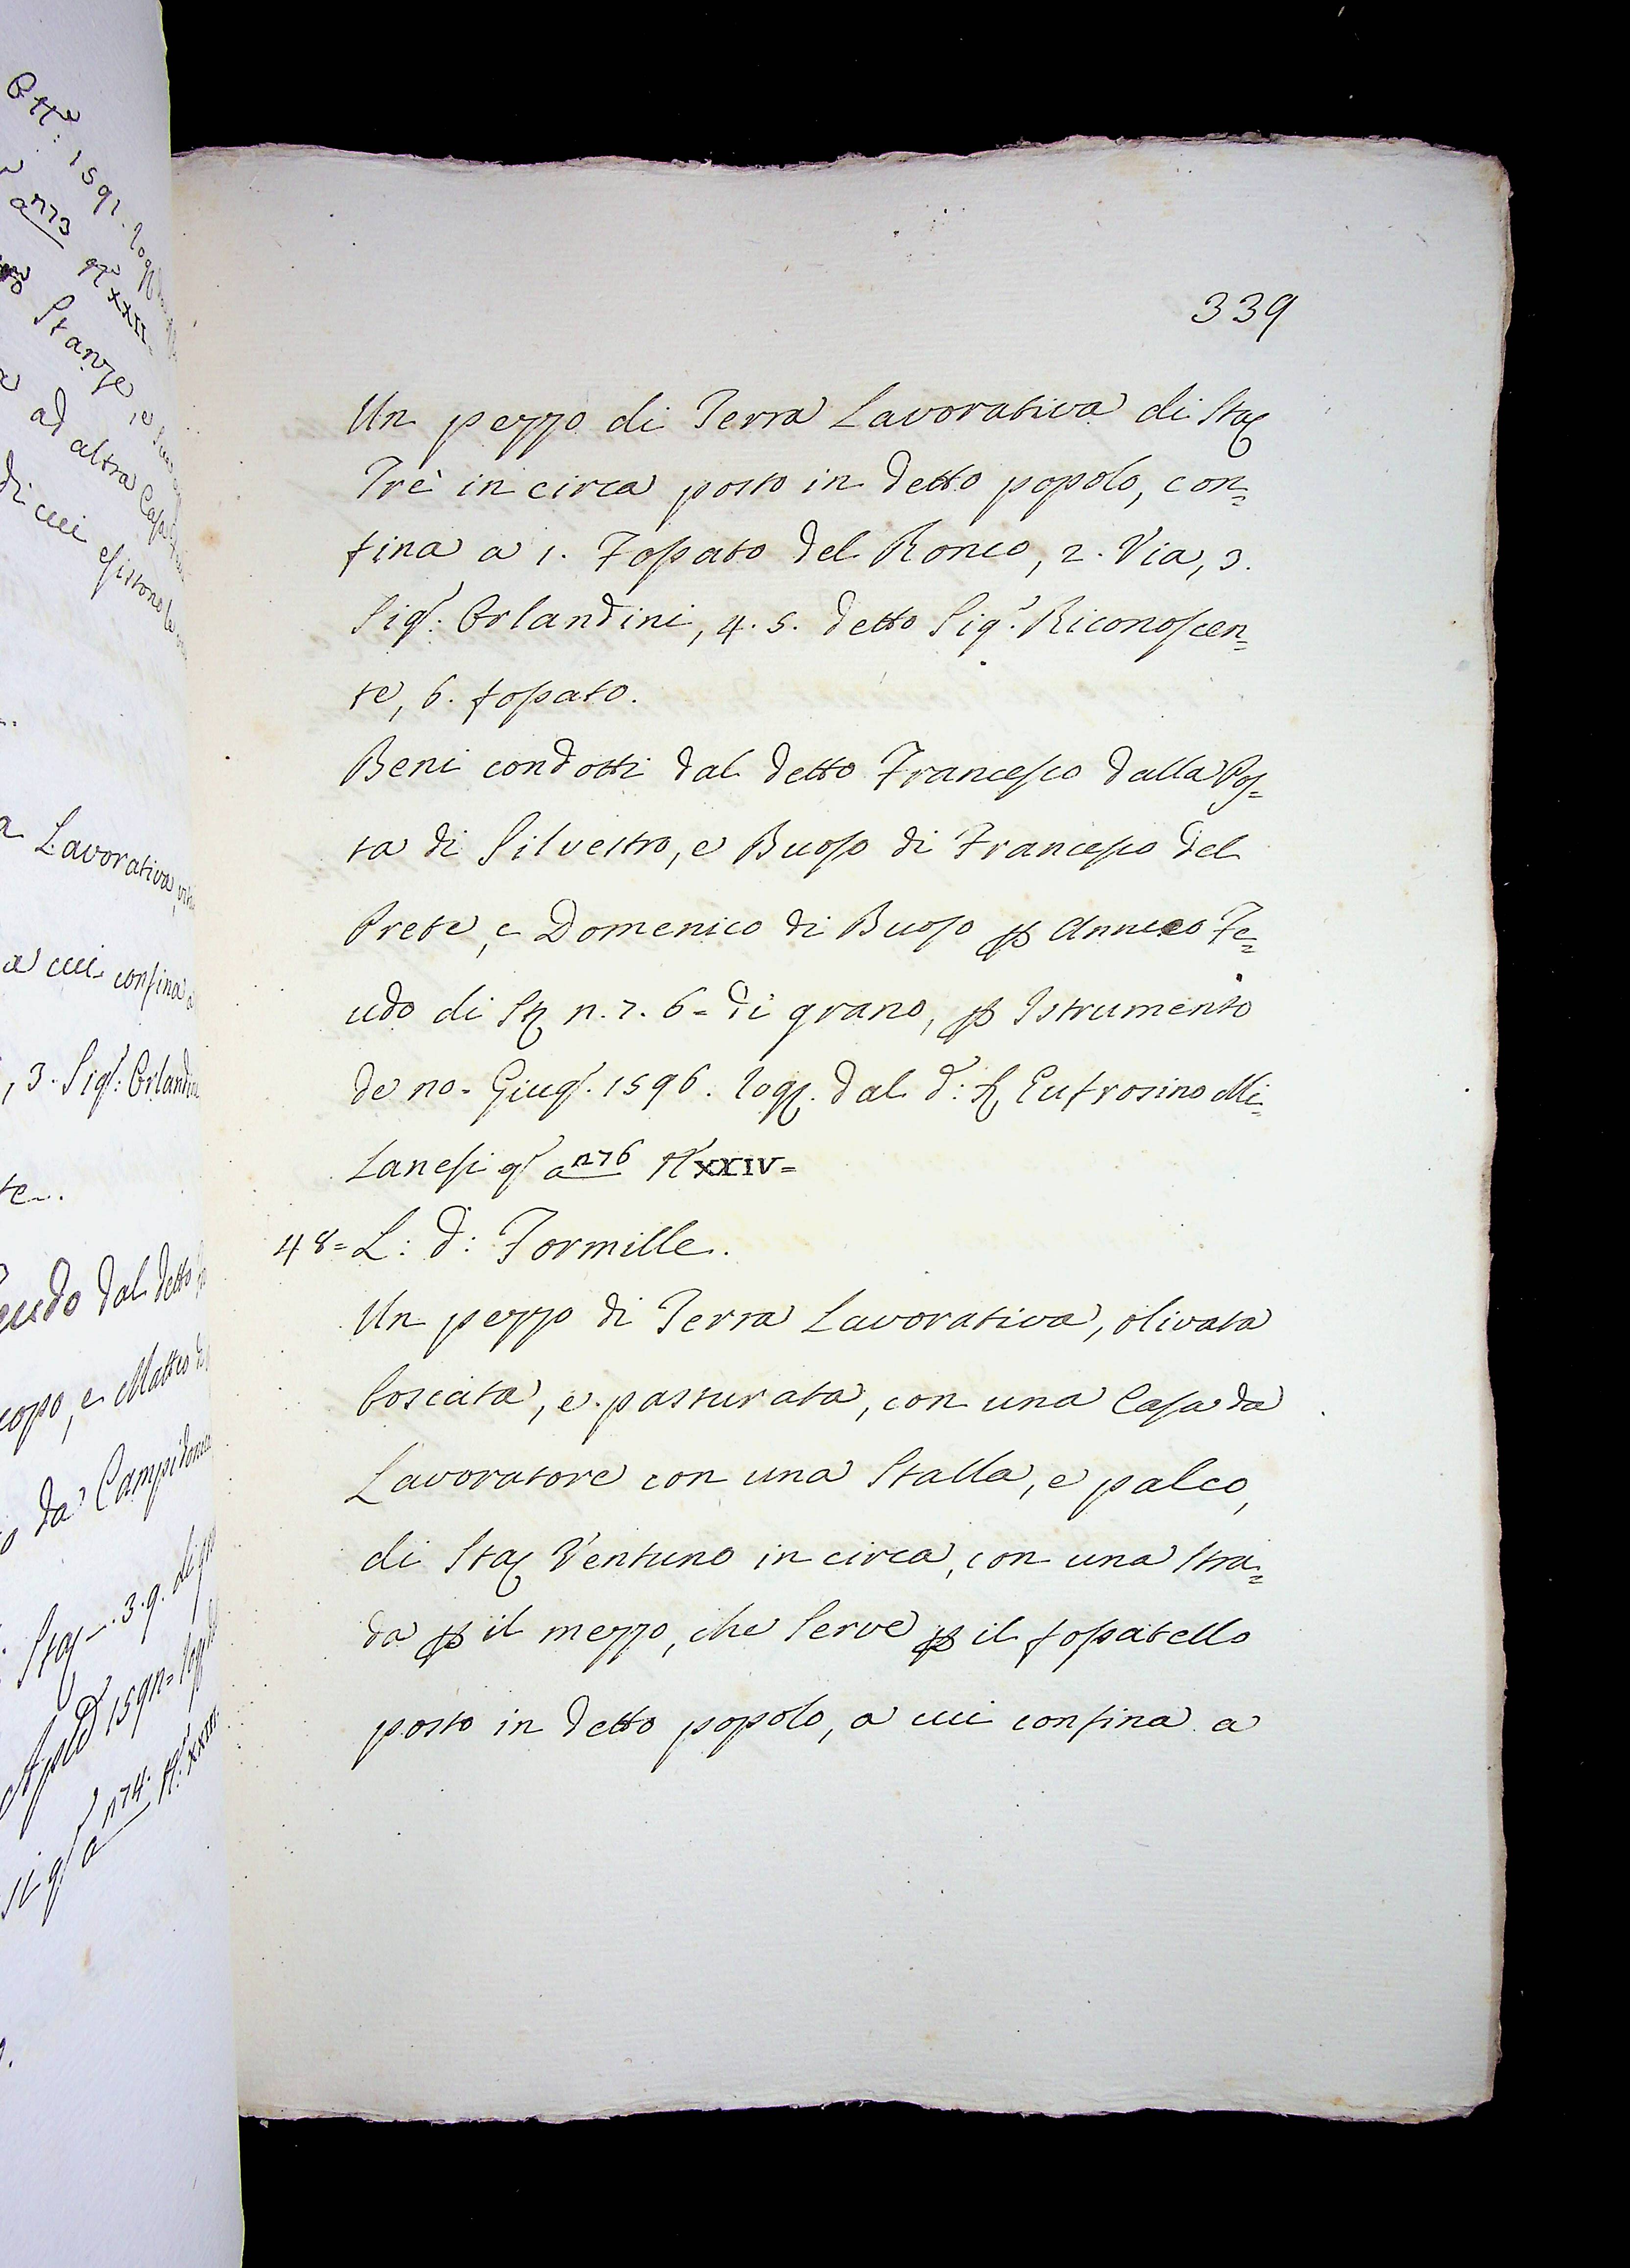 339
Un pezzo di Terra Lavorativa di Sta
Trè in circa posto in detto popolo, con=
fina a 1. Fossato del Ronco, 2. Via, 3.
Sigr: Orlandini, 4. 5. detto Sigr. Riconoscen=
te, 6. fossato.
Beni condotti dal detto Francesco dalla Pos=
ta di Silvestro, e Buoso di Francesco del
Prete, e Domenico di Buoso p Annuo Fe=
udo di n. 7. 6= di grano, p Istrumento
de no= Giugr. 1596. dal d: Eufrosino Mi=
lanesi a n76 XXIV=
48= L: d: Formille.
Un pezzo di Terra Lavorativa, olivata
boscata, e pasturata, con una Casa da
Lavoratore con una Stalla, e palco,
di Sta Ventuno in circa, con una stra=
da p il mezzo, che serve p il fossatello
posto in detto popolo, a cui confina a
1591.
n73
XXII=
Stanze, e
ad altra Casa
di cui esistono le
Lavorativa,
a cui confina a
, 3. Sigr: Orlandini
te..
dal detto
, e Matteo
da Campidonica
Sta 3. 9. di
n74. XXIII.